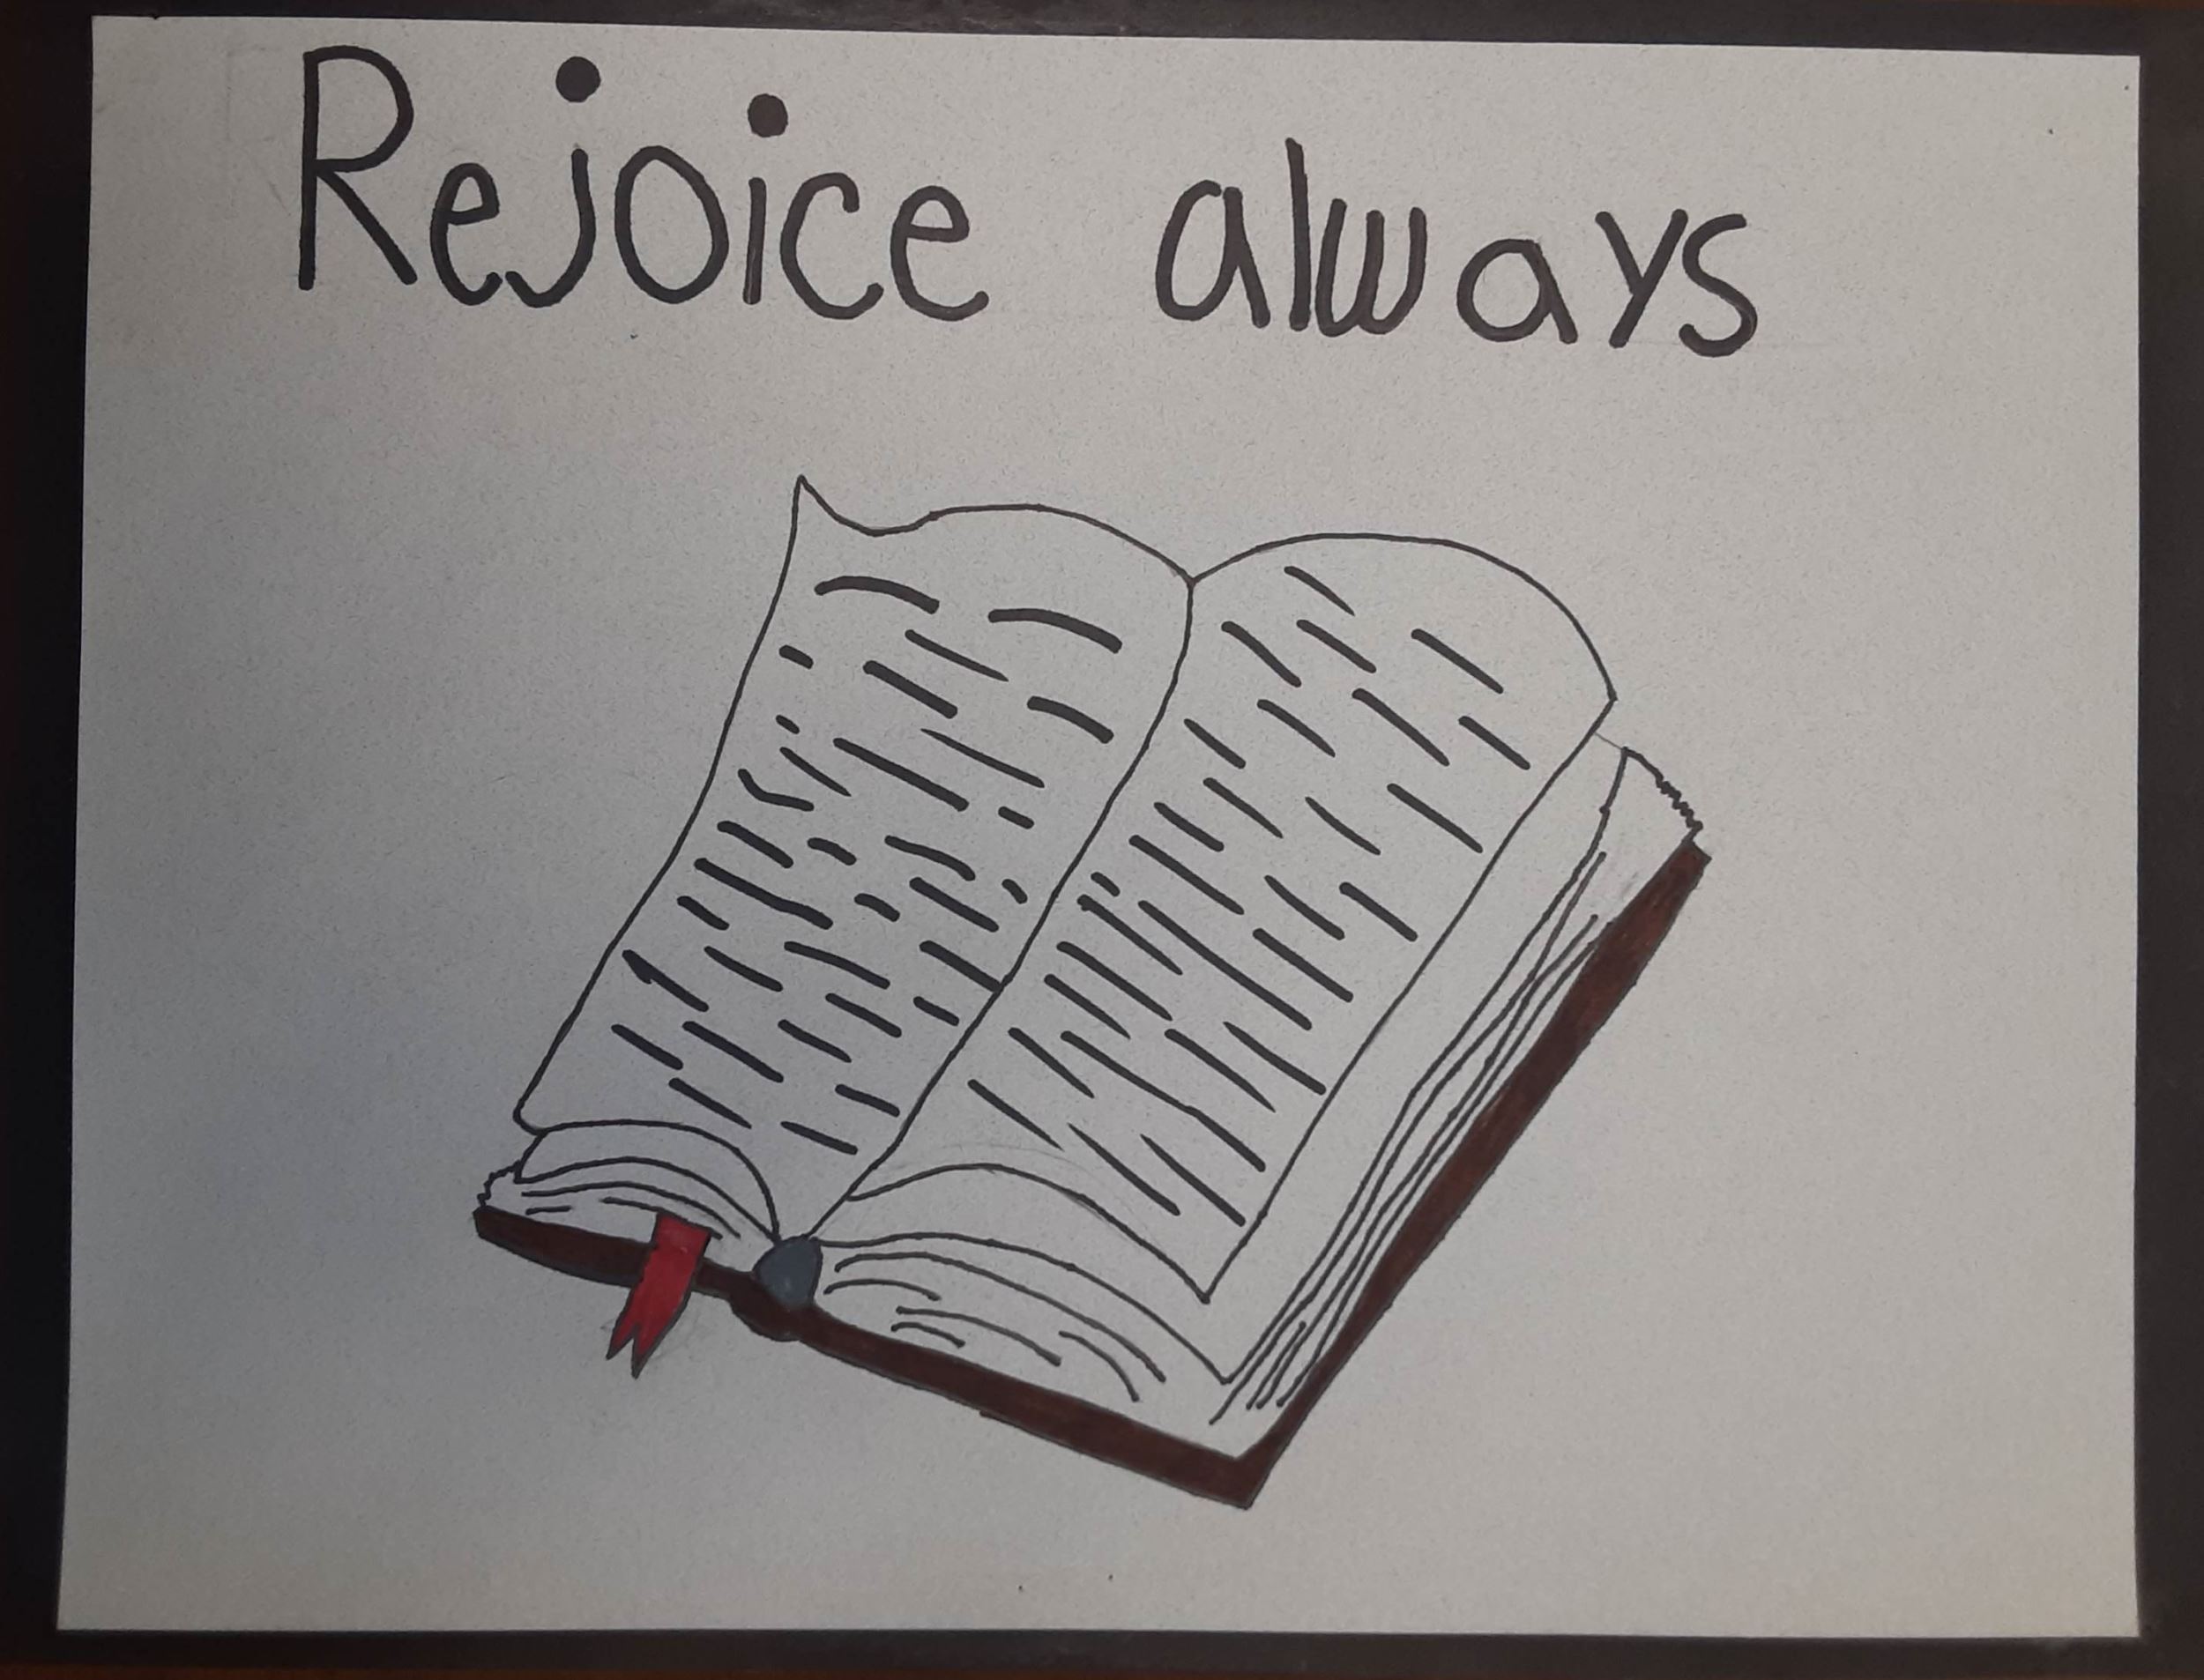 Rejoice always